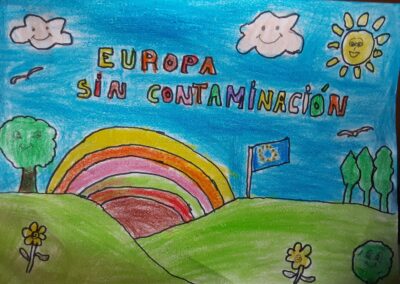 EUROPA
SIN CONTAMINACIÓN